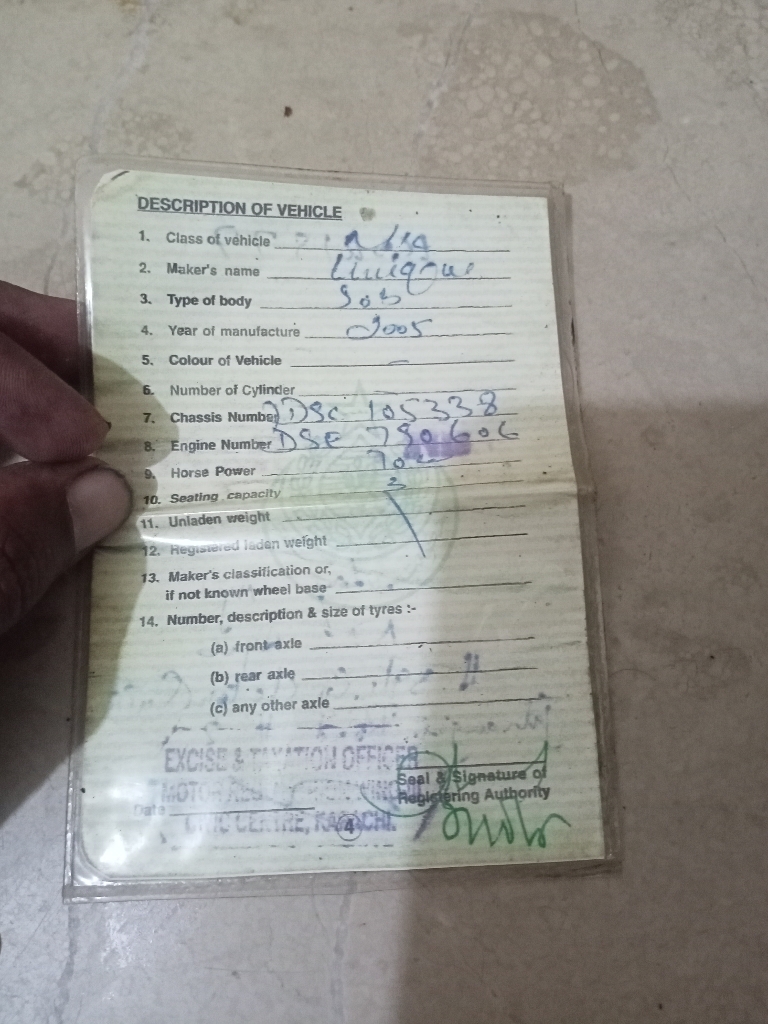 DESCRIPTION OF VEHICLE
1. Class of vehicle
2. Maker's name Unique
3. Type of body Sob
4. Year of manufacture 2005
5. Colour of Vehicle —
6. Number of Cylinder
7. Chassis Number DSC 105338
8. Engine Number DSE
9. Horse Power 70cc
10. Seating capacity 2
11. Unladen weight
12. Registered laden weight
13. Maker's classification or,
if not known wheel base
14. Number, description & size of tyres :-
(a) front axle
(b) rear axle
(c) any other axle
EXCISE & TAXATION OFFICER
Seal & Signature of
MOTOR
Registering Authority
Date
CIVIC CENTRE, KARACHI.
4